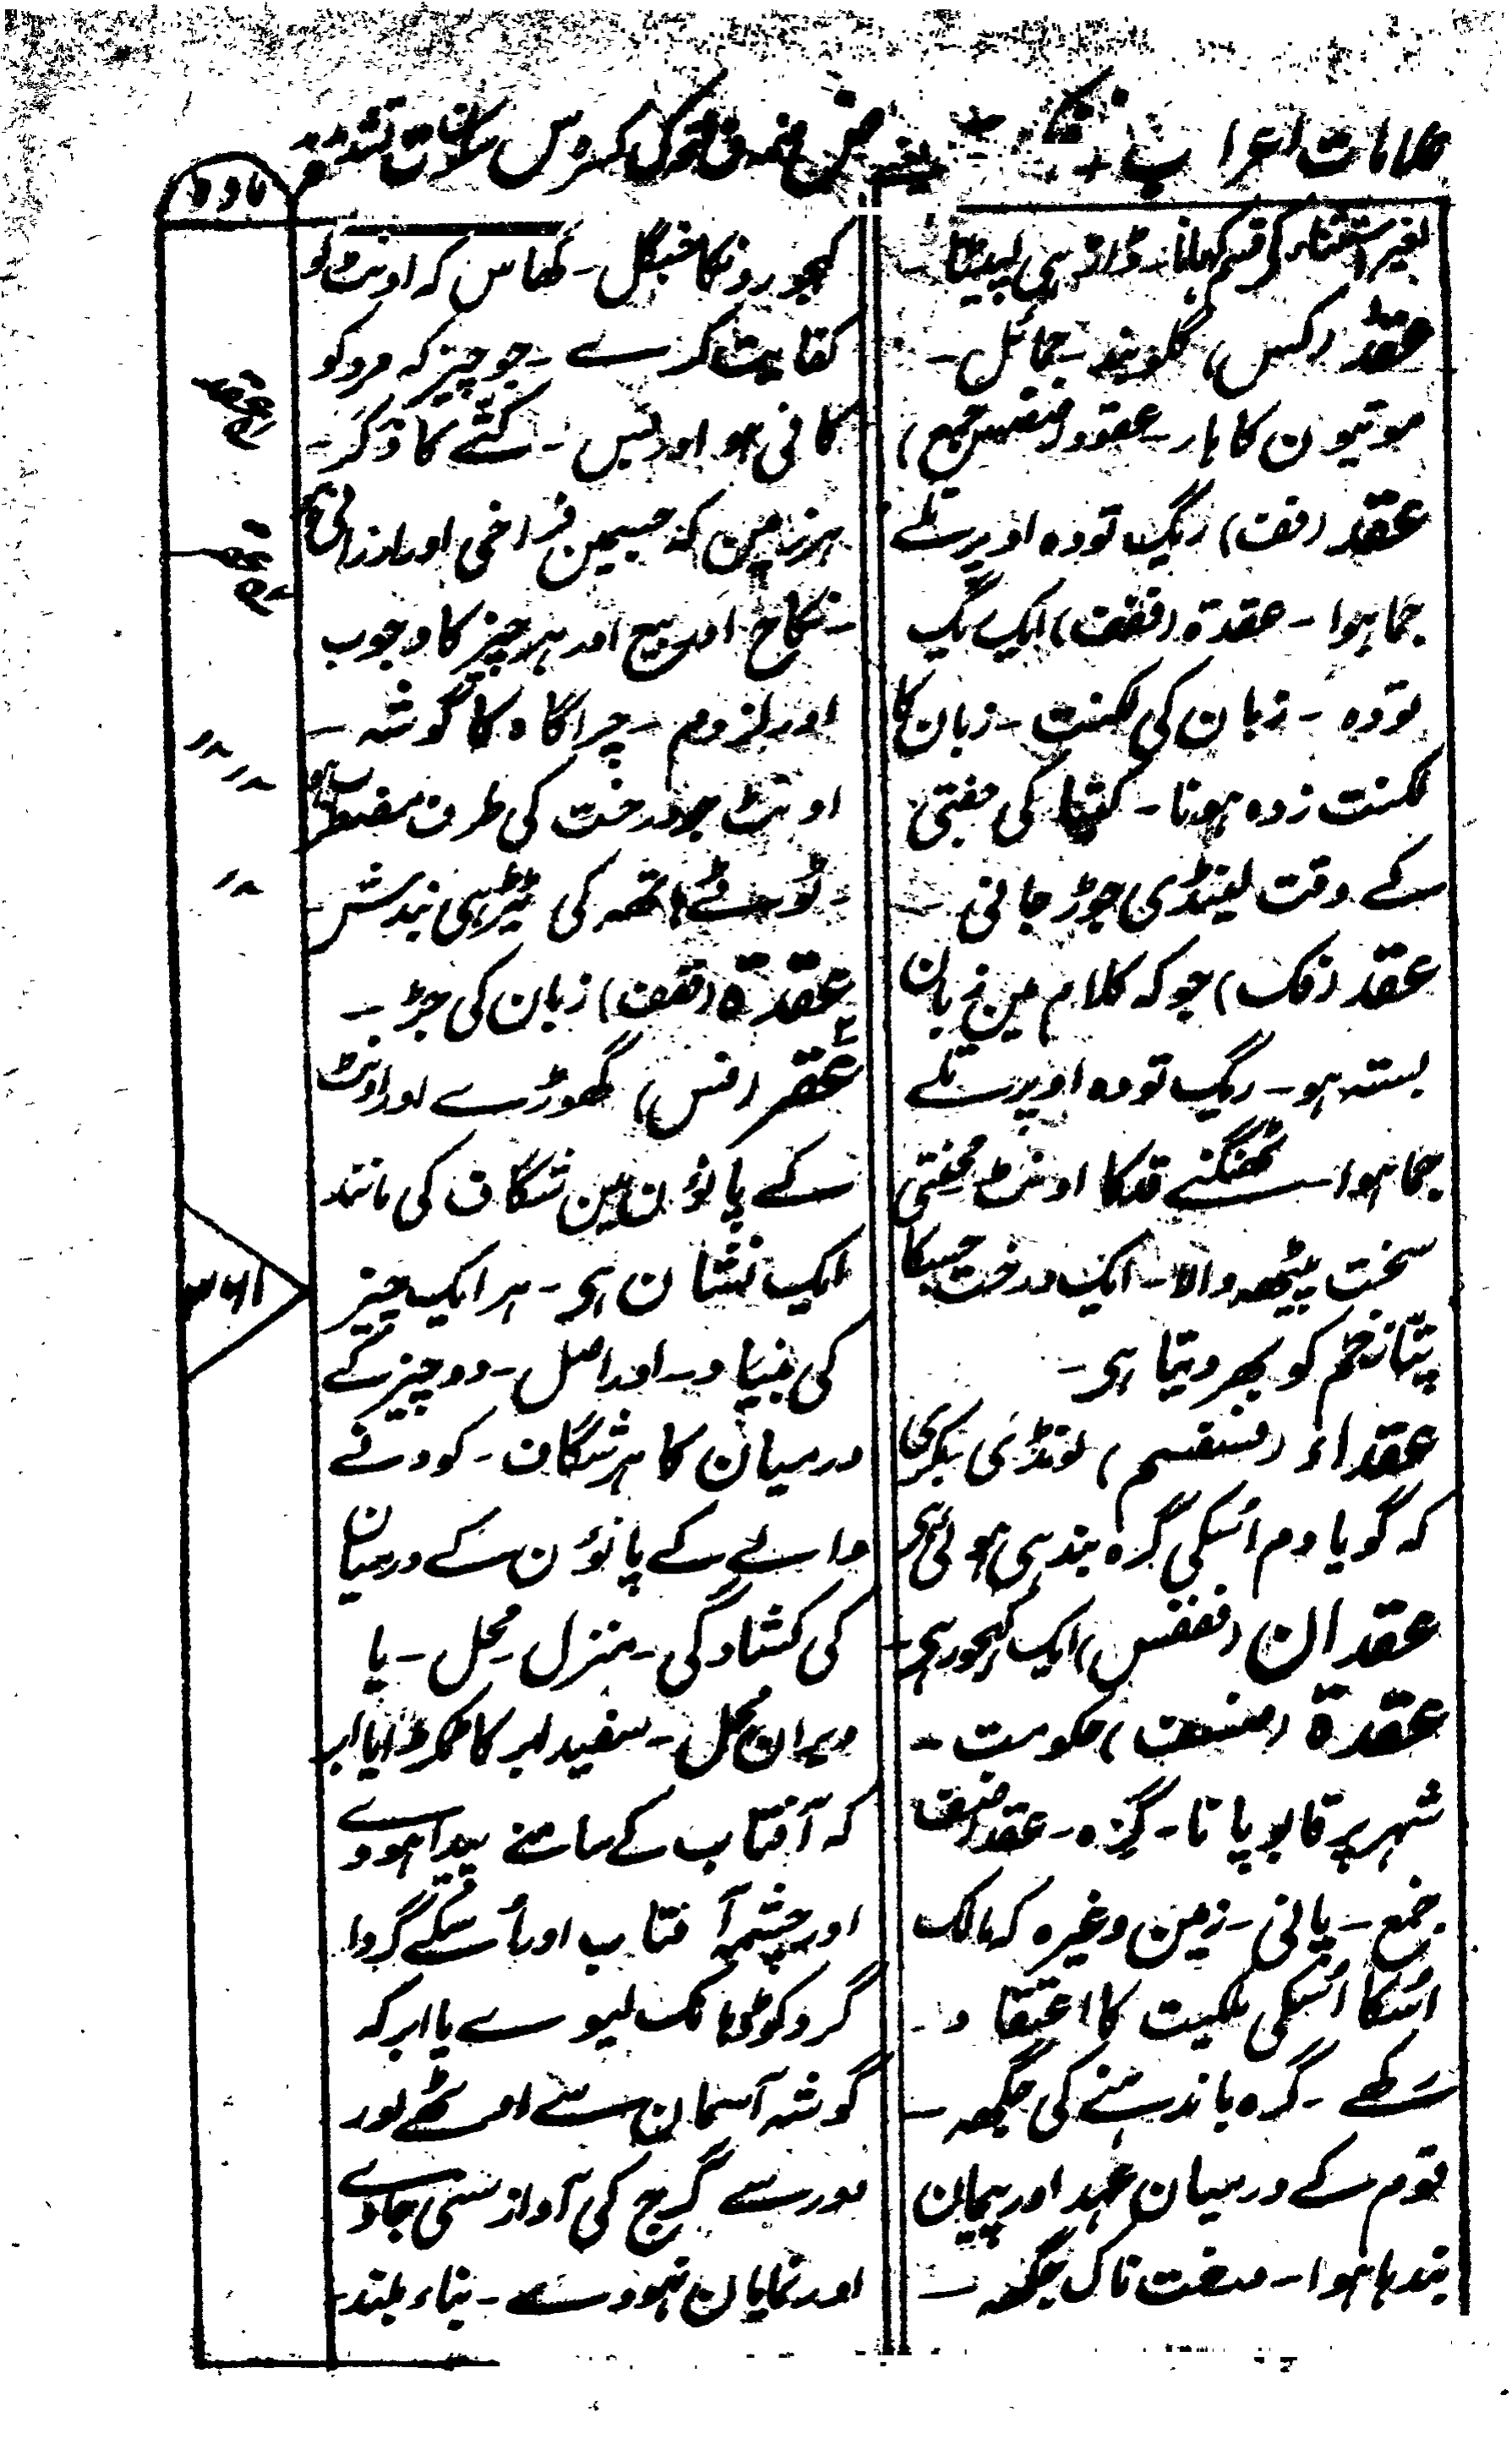 علامات اعراب
ض ضمہ ف فتحہ ک کسرہ س ساکن ت تشدید
مادہ
بغیر استثناء کی قسم کھانا۔ ڈاڑھی لپیٹنا۔
عقد (کس) گلوبند۔ حمائل۔
موتیون کا ہار۔ عقود (ضضس جمع)
عقد (فف) ریگ تودہ اوپر تلے
جما ہوا۔ عقدۃ (ففف) ایک ریگ
تودہ۔ زبان کی لکنت۔ زبان کا
لکنت زدہ ہونا۔ کتیا کی جفتی
کے وقت لینڈی جوڑ جانی۔
عقد (فک) جو کہ کلام مین زبان
بستہ ہو۔ ریگ تودہ اوپر تلے
جما ہوا۔ ٹھنگنے قد کا اونٹ محنتی
سخت پیٹھہ والا۔ ایک درخت جسکا
پتا زخم کو بھر دیتا ہی۔
عقداء (فسفسم) لونڈی بکری
کہ گویا دم اُسکی گرہ بندہی ہوئی ہی
عقدان (فففس) ایک کھجور ہی۔
عقدۃ (ضسف) حکومت۔
شہر پر قابو پانا۔ گرہ۔ عقد ضف
جمع۔ پانی۔ زمین وغیرہ کہ مالک
اُسکا اُسکی ملکیت کا اعتقاد۔
رکھے۔ گرہ باندہنے کی جگہہ۔
قوم کے درمیان عہد اور پیمان
بندہا ہوا۔ درخت ناک جگہہ۔
کھجورونکا جنگل۔ گھاس کہ اونٹ کو
کفایت کرے۔ جو چیز کہ مرد کو
کافی ہو اور بس۔ کتے کا ذکر۔
ہر زمین کہ جسمین فراخی اور ارزانی ہو
۔نکاح اور بیع اور ہر چیز کا وجوب
اور لزوم۔ چراگاہ کا گوشہ۔
اونٹ جو درخت کی طرف مضطر ہو
۔ ٹوٹے ہاتھہ کی ٹیڑہی بندش۔
عقدۃ (ففف) زبان کی جڑ۔
عقر (فس) گھوڑے اور اونٹ
کے پانوٴن مین شگاف کی مانند
ایک نشان ہی۔ ہر ایک چیز
کی بنیاد۔ اور اصل۔ دو چیز کے
درمیان کا ہر شگاف۔ کودنے
والے کے پانوٴن کے درمیان
کی کشادگی۔ منزل۔ محل۔ یا
ویران محل۔ سفید ابر کا ٹکڑا یا ابر
کہ آفتاب کے سامنے پیدا ہووے
اور چشمہ آفتاب اور اُسکے گردا
گرد کو ڈہانک لیوے یا ابر کہ
گوشہ آسمان سے اوٹھے اور
دور سے گرج کی آواز سنی جاوے
اور نمایان نہووے۔ بناء بلند۔
عقد
عقر
۱ ۶ ۳